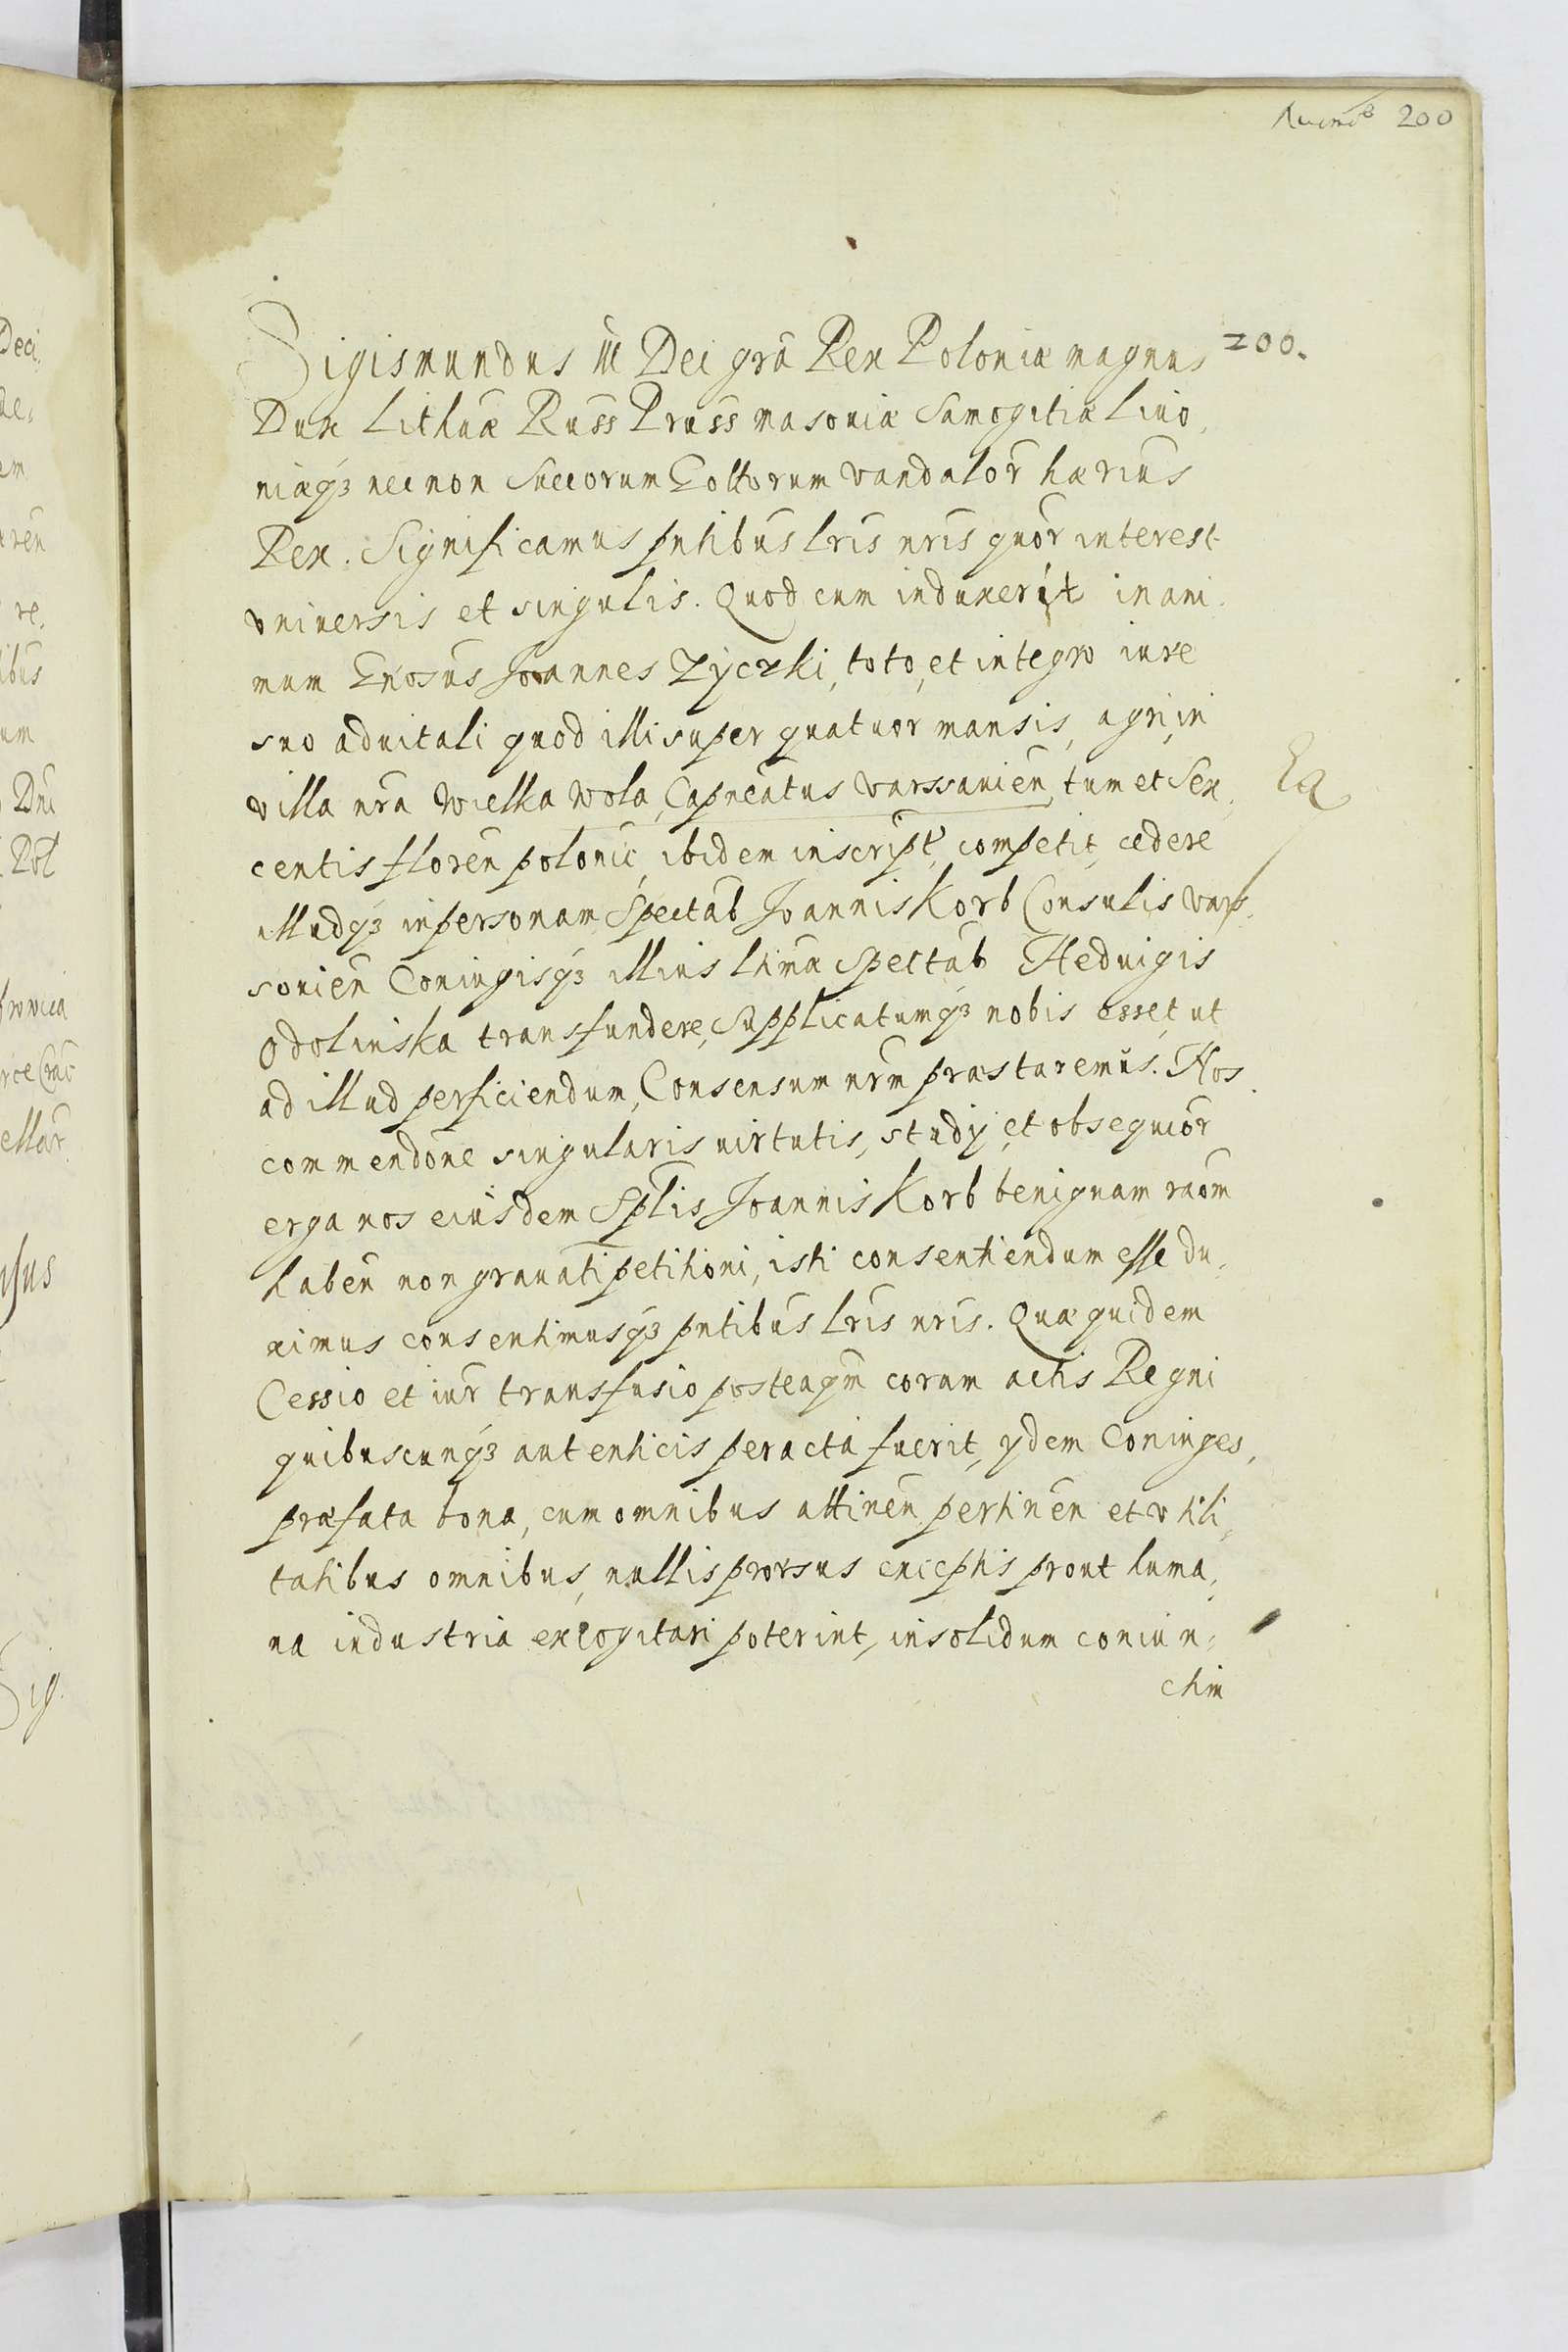 200
Sigismundus III Dei grã Rex Poloniæ magnus 200.
Dux Lithuæ Russ Pruss masoviæ Samogitiæ Livo,
niæqз necnon Sueeorum Gottorum vandalor hærius
Rex. Significamus pntibus lris nris quor interest
vniversis et singulis. Quod cum induxerit in ani
mum Gnosus Joannes Zÿczki, toto, et integro iure
suo aduitali quod illi super quatuor mansis, agri, in
villa nra Wielka Wola, Capneatus varssauien, tum et Sex, Ea
centis floren polonic, ibidem inscript, competit, cedere
illudqз in personam Spectab Joannis Korb Consulis vars,
souien Coniugisqз illius lhima spectab Heduigis
Odolinska transfundere, Supplicatumqз nobis esset, ut
ad illud perficiendum, Consensum nrm præstaremus. Nos
commendone singularis uirtutis, studÿ, et obsequior
erga nos eiusdem Splis Joannis Korb benignam raom
haben non grauati petitioni, isti consentiendum esse du,
ximus consentimusqз pntibus lris nris. Quæ quidem
Cessio et iur transfusio posteaqm coram actis Regni
quibuscunqз autenticis peracta fuerit, ydem Coniuges,
præfata bona, cum omnibus attinen pertinen et vtili,
tatibus omnibus, nullis prorsus exceptis prout huma,
na industria excogitari poterint, insolidum coniun,
ctim